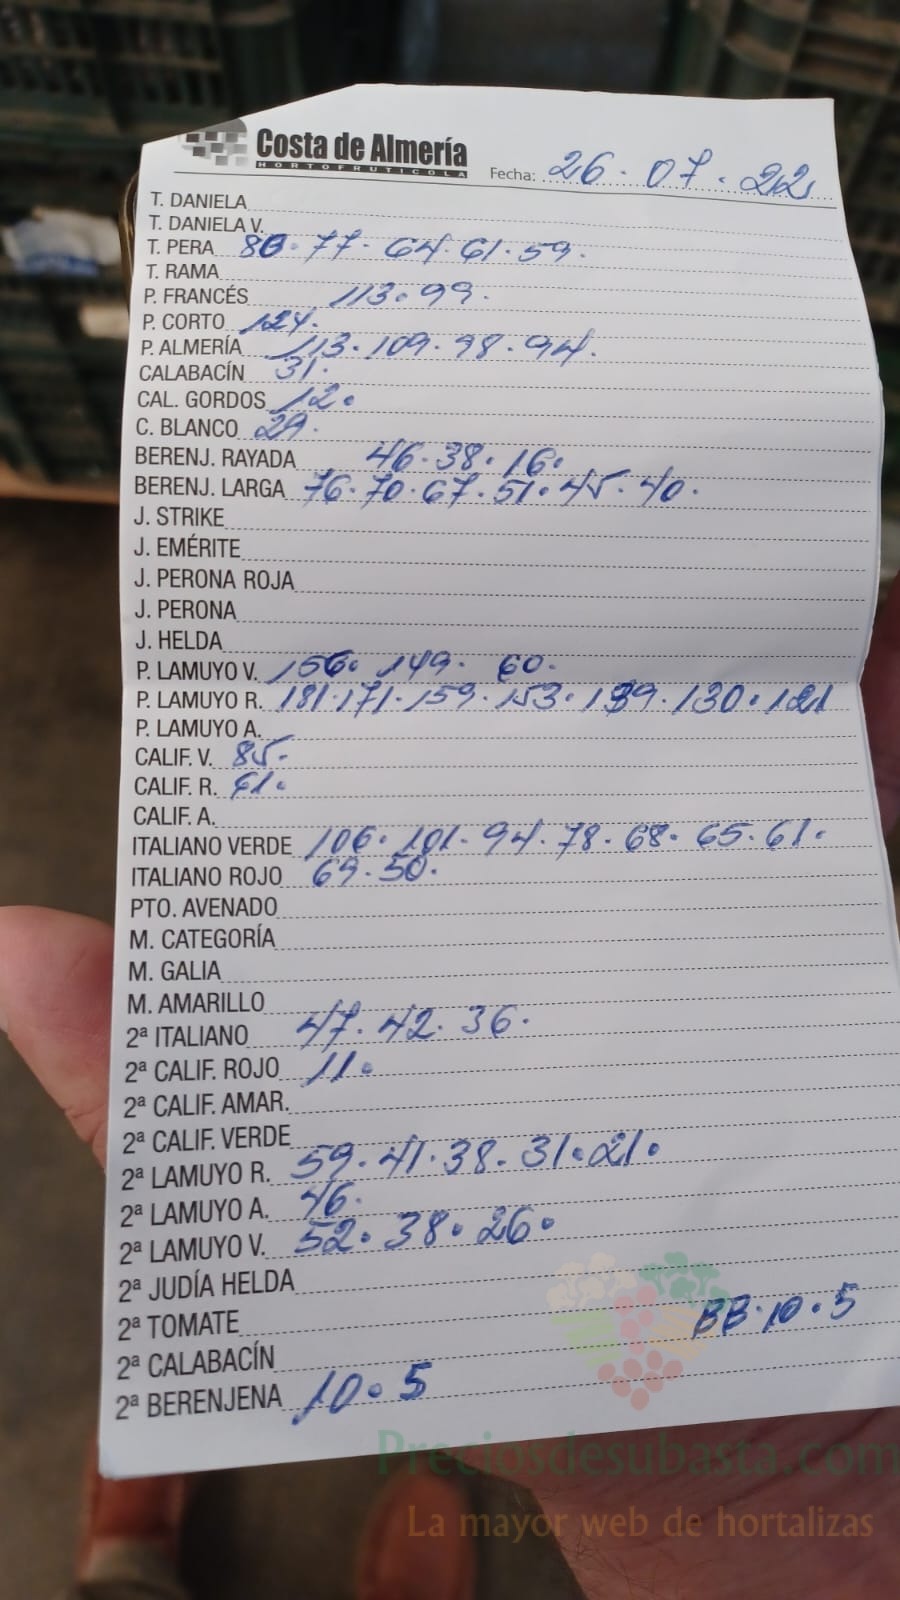 Costa de Almería
HORTOFRUTICOLA
Fecha: 26.07.22
T. DANIELA
T. DANIELA V.
T. PERA 80.77.64.61.59.
T. RAMA
P. FRANCÉS 113.99.
P. CORTO 124.
P. ALMERÍA 113.109.98.94.
CALABACÍN 31.
CAL. GORDOS 12.
C. BLANCO 29.
BERENJ. RAYADA 46.38.16.
BERENJ. LARGA 76.70.67.51.45.40.
J. STRIKE
J. EMÉRITE
J. PERONA ROJA
J. PERONA
J. HELDA
P. LAMUYO V. 156. 149. 60.
P. LAMUYO R. 181.171.159.153.139.130.121
P. LAMUYO A.
CALIF. V. 85.
CALIF. R. 61.
CALIF. A.
ITALIANO VERDE 106.101.94.78.68.65.61.
ITALIANO ROJO 69.50.
PTO. AVENADO
M. CATEGORÍA
M. GALIA
M. AMARILLO
2ª ITALIANO 47.42.36.
2ª CALIF. ROJO 11.
2ª CALIF. AMAR.
2ª CALIF. VERDE
2ª LAMUYO R. 59.41.38.31.21.
2ª LAMUYO A. 46.
2ª LAMUYO V. 52.38.26.
2ª JUDÍA HELDA
2ª TOMATE BB.10.5
2ª CALABACÍN
2ª BERENJENA 10.5
Preciosdesubasta.com
La mayor web de hortalizas